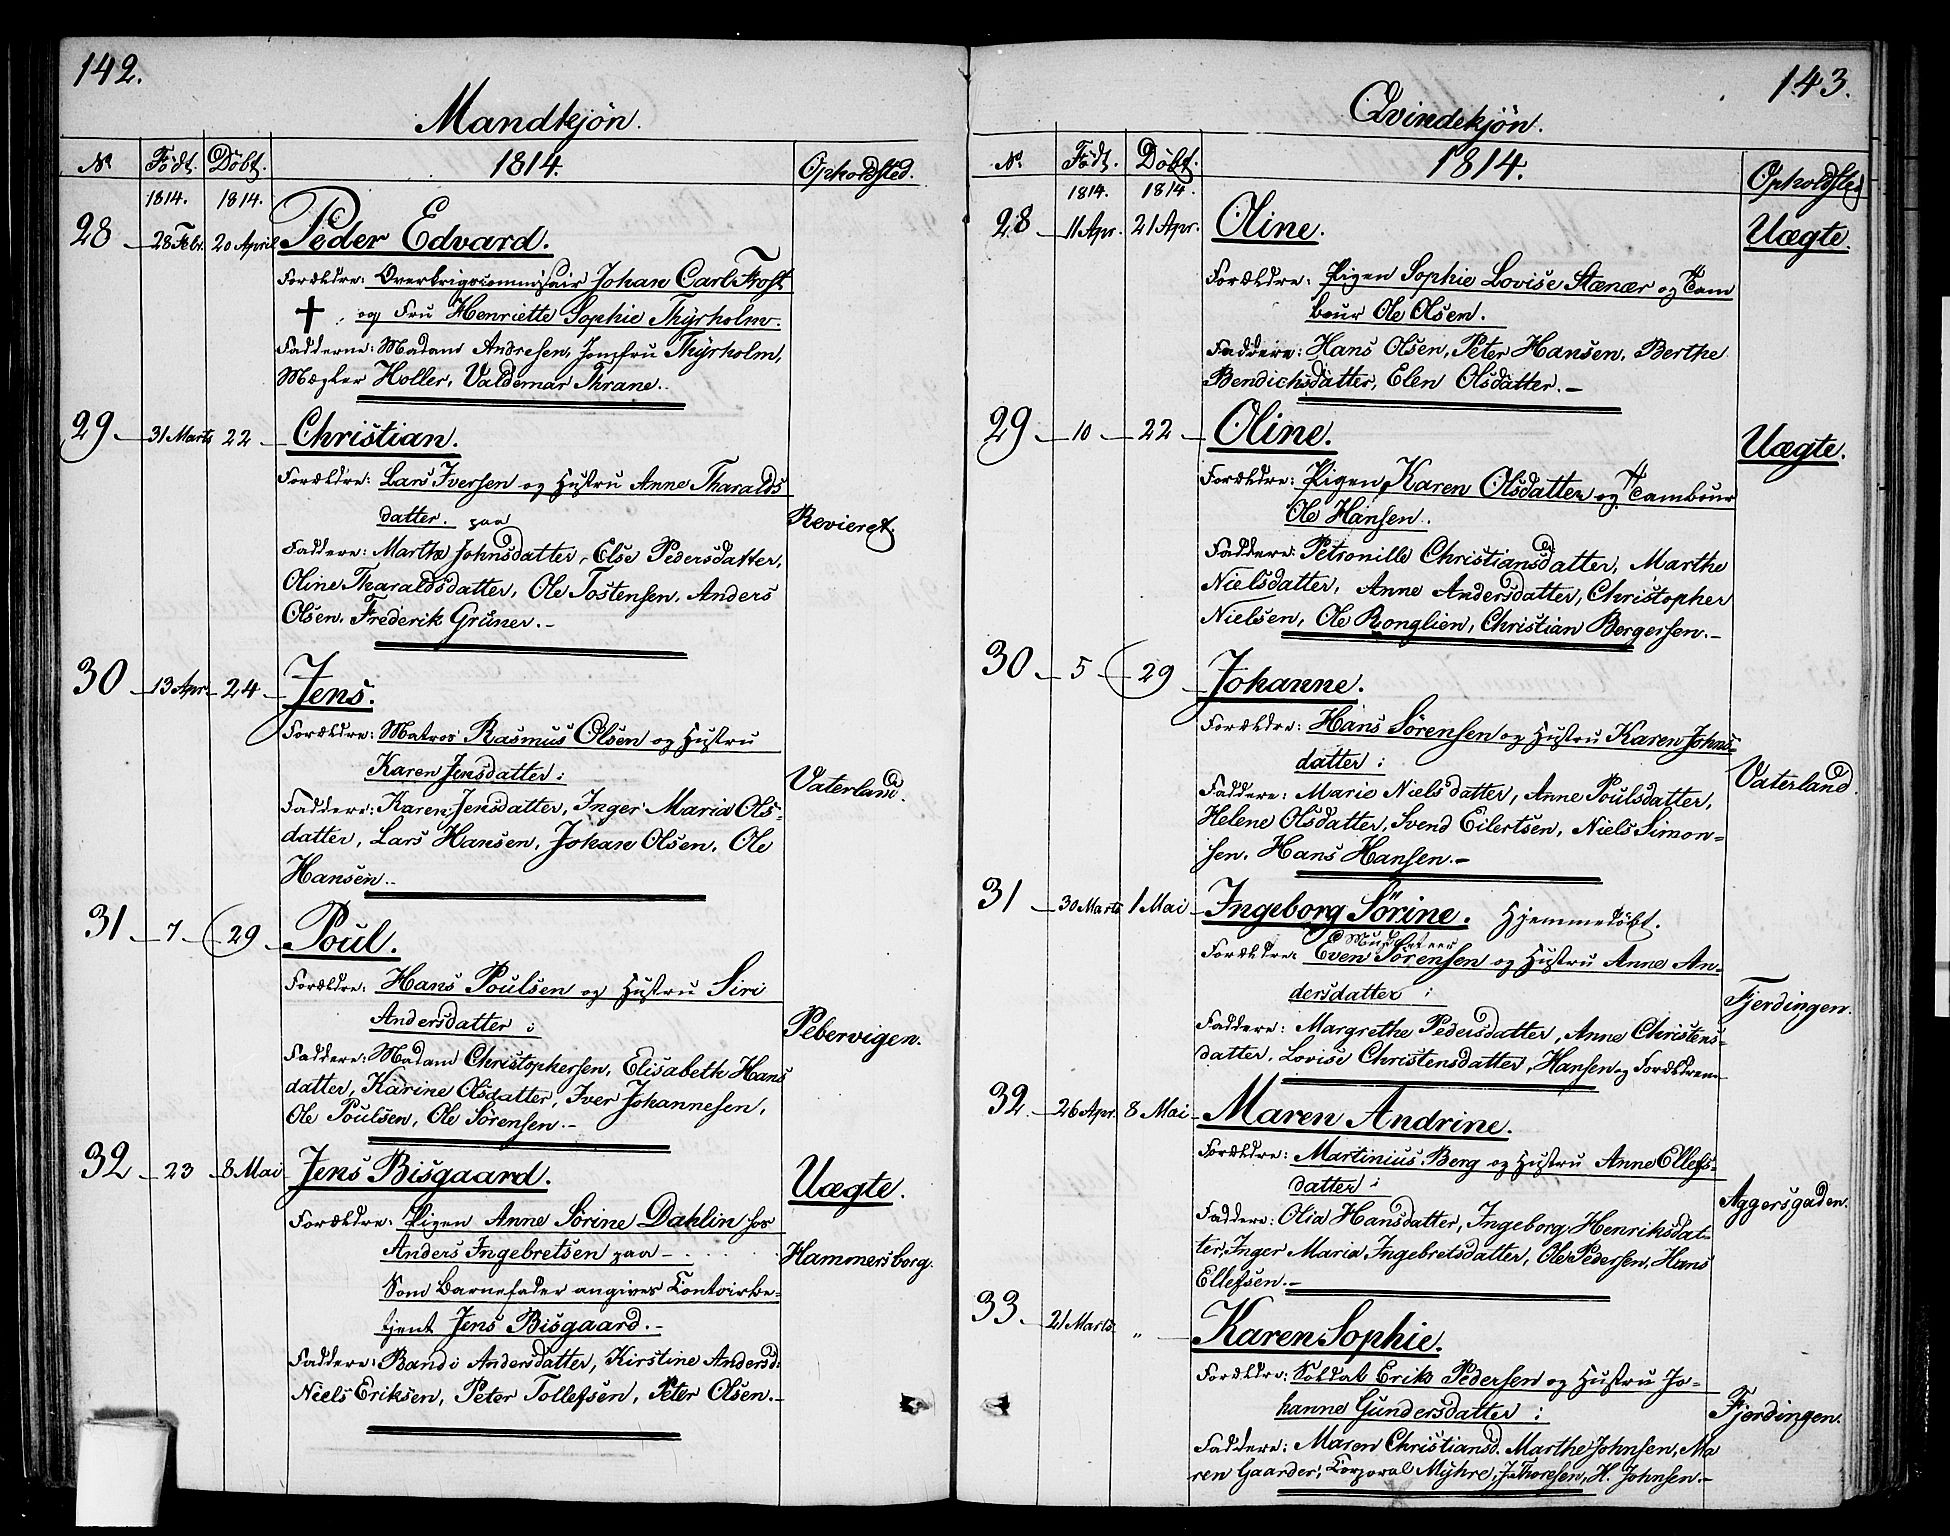 142.
Mandkjön.
No. Födt. Döbt. 1814. Opholdsted.
1814. 1814.
28 28 Febr. 20 April Peder Edvard.
Forældre: Overkrigscommissair Johan Carl Frost
† og Fru Henriette Sophie Thÿrholm.
Fadderne: Madam Andresen, Jomfru Thÿrholm,
Mægler Holler, Valdemar Thrane.
29 31 Marts 22 Christian.
Forældre: Lars Iversen og Hustru Anne Tharalds
datter. paa Revieret.
Faddere: Marthe Johnsdatter, Else Pedersdatter,
Oline Tharaldsdatter, Ole Tostensen, Anders
Olsen, Frederik Grüner.
30 13 Apr. 24 Jens.
Forældre: Matros Rasmus Olsen og Hustru
Karen Jensdatter: Vaterland.
Faddere: Karen Jensdatter, Inger Maria Ols-
datter, Lars Hansen, Johan Olsen, Ole
Hansen.
31 7 29 Poul.
Forældre: Hans Poulsen og Hustru Siri
Andersdatter: Pebervigen.
Faddere: Madam Christophersen, Elisabeth Hans
datter, Karine Olsdatter, Iver Johannesen,
Ole Poulsen, Ole Sörensen.
32 23 8 Mai Jens Bisgaard. Uægte.
Forældre: Pigen Anne Sörine Dahlin hos
Anders Ingebretsen paa Hammersborg.
Som Barnefader angives Contoirbe-
tjent Jens Bisgaard.
Faddere: Bandi Andersdatter, Kirstine Andersd:
Niels Eriksen, Peter Tollefsen, Peter Olsen.
143.
Qvindekjön.
No. Födt. Döbt. 1814. Opholdsted
1814. 1814.
28 11 Apr. 21 Apr. Oline. Uægte.
Forældre: Pigen Sophie Lovise Stænær og Tam
bour Ole Olsen.
Faddere: Hans Olsen, Peter Hansen, Berthe
Bendichsdatter, Elen Olsdatter.
29 10 22 Oline. Uægte.
Forældre: Pigen Karen Olsdatter og Tambour
Ole Hansen.
Faddere: Petronille Christiansdatter, Marthe
Nielsdatter, Anne Andersdatter, Christopher
Nielsen, Ole Ronglien, Christian Bergersen.
30 5 29 Johanne.
Forældre: Hans Sörensen og Hustru Karen Johns-
datter: Vaterland.
Faddere: Marie Nielsdatter, Anne Poulsdatter,
Helene Olsdatter, Svend Eilertsen, Niels Simon-
sen, Hans Hansen.
31 30 Marts 1 Mai Ingeborg Sörine. Hjemmedöbt.
Musketeer
Forældre: Even Sörensen og Hustru Anne An-
dersdatter: Fjerdingen.
Faddere: Margrethe Pedersdatter, Anne Christens-
datter, Lovise Christensdatter, Hansen og Forældrene
32. 26 Apr. 8 Mai Maren Andrine.
Forældre: Martinius Berg og Hustru Anne Ellefs-
datter: Aggersgaden.
Faddere: Olia Hansdatter, Ingeborg Henriksdat-
ter, Inger Maria Ingebretsdatter, Ole Pedersen, Hans
Ellefsen.
33. 21 Marts " Karen Sophie.
Forældre: Soldat Erik Pedersen og Hustru Jo-
hanne Gundersdatter: Fjerdingen.
Faddere: Maren Christiansd. Marthe Johnsen, Ma
ren Gaarder, Korporal Mÿhre, J. Thoresen, H. Johnsen.